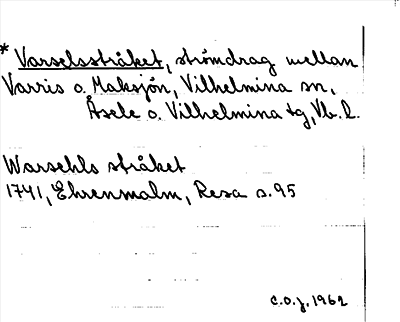 * Varselsstråket, strömdrag mellan
Varris o. Maksjön, Vilhelmina sn,
Åsele o. Vilhelmina tg, Vb. l.
Warsehls stråket
1741, Ehrenmalm, Resa s. 95
C.O.J. 1962